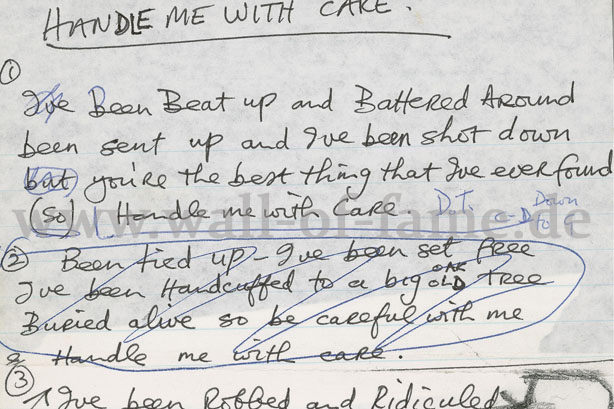 HANDLE ME WITH CARE.
①
I've Been Beat up and Battered Around
been sent up and I've been shot down
but you're the best thing that I've ever found
(So) Handle me with Care. D.T. Down
C-D to F
www.wall-of-fame.de
② Been tied up - I've been set free
I've been Handcuffed to a big OAK OLD TREE
Buried alive so be careful with me
& Handle me with care.
③
I've been Robbed and Ridiculed